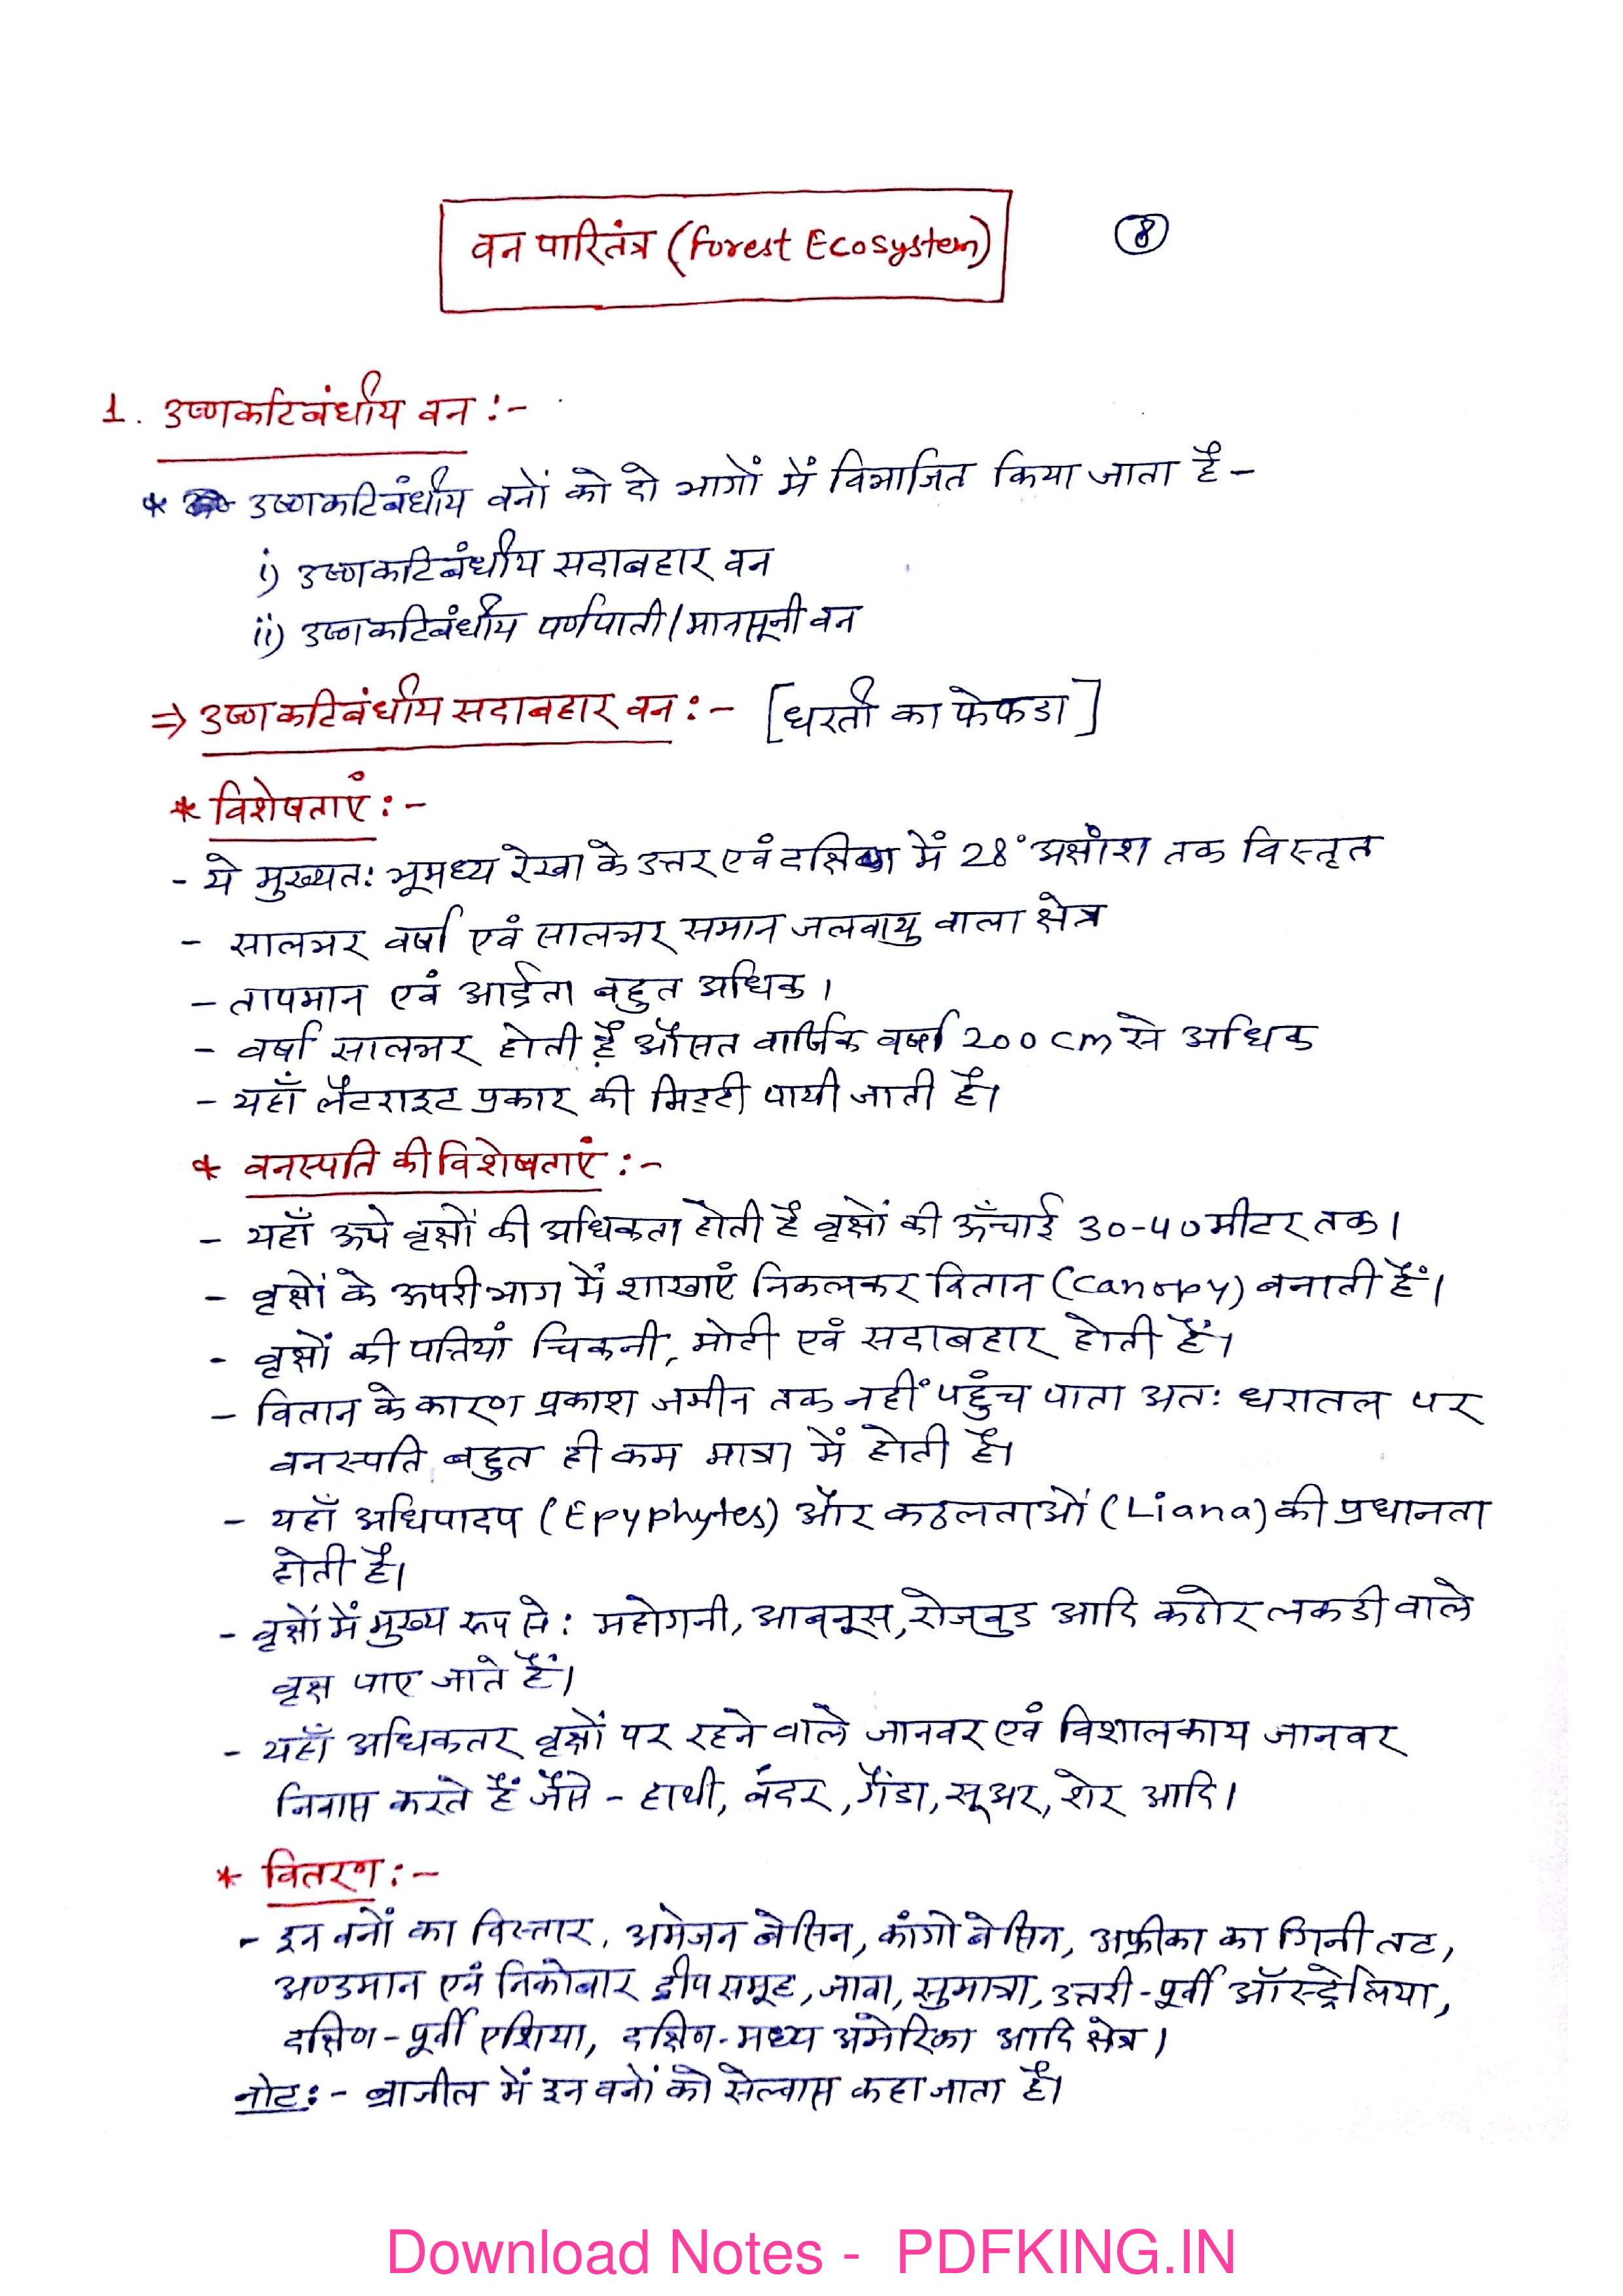 वन पारितंत्र (Forest Ecosystem)
8
1. उष्णकटिबंधीय वन :-
* उष्णकटिबंधीय वनों को दो भागों में विभाजित किया जाता है -
i) उष्णकटिबंधीय सदाबहार वन
ii) उष्णकटिबंधीय पर्णपाती/मानसूनी वन
⇒ उष्णकटिबंधीय सदाबहार वन :- [धरती का फेफडा]
* विशेषताएं :-
- ये मुख्यतः भूमध्य रेखा के उत्तर एवं दक्षिण में 28° अक्षांश तक विस्तृत
- सालभर वर्षा एवं सालभर समान जलवायु वाला क्षेत्र
- तापमान एवं आर्द्रता बहुत अधिक।
- वर्षा सालभर होती है औसत वार्षिक वर्षा 200 cm से अधिक
- यहाँ लैटराइट प्रकार की मिट्टी पायी जाती है।
* वनस्पति की विशेषताएं :-
- यहाँ ऊचे वृक्षों की अधिकता होती है वृक्षों की ऊँचाई 30-40 मीटर तक।
- वृक्षों के ऊपरी भाग में शाखाएं निकलकर वितान (Canopy) बनाती हैं।
- वृक्षों की पत्तियां चिकनी, मोटी एवं सदाबहार होती हैं।
- वितान के कारण प्रकाश जमीन तक नहीं पहुंच पाता अतः धरातल पर
वनस्पति बहुत ही कम मात्रा में होती है।
- यहाँ अधिपादप (Epyphytes) और कठलताओं (Liana) की प्रधानता
होती है।
- वृक्षों में मुख्य रूप से : महोगनी, आबनूस, रोजवुड आदि कठोर लकडी वाले
वृक्ष पाए जाते हैं।
- यहाँ अधिकतर वृक्षों पर रहने वाले जानवर एवं विशालकाय जानवर
निवास करते हैं जैसे - हाथी, बंदर, गैंडा, सूअर, शेर आदि।
* वितरण :-
- इन वनों का विस्तार, अमेजन बेसिन, कांगो बेसिन, अफ्रीका का गिनी तट,
अण्डमान एवं निकोबार द्वीप समूह, जावा, सुमात्रा, उत्तरी-पूर्वी ऑस्ट्रेलिया,
दक्षिण-पूर्वी एशिया, दक्षिण-मध्य अमेरिका आदि क्षेत्र।
नोट :- ब्राजील में इन वनों को सेल्वास कहा जाता है।
Download Notes - PDFKING.IN